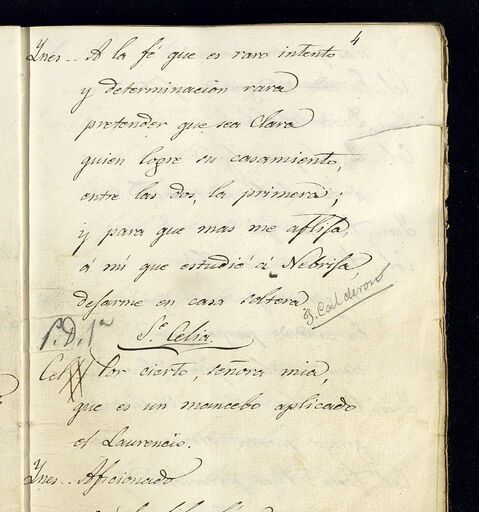 4
Ynes.. A la fé que es raro intento
y determinacion rara
pretender que sea Clara
quien logre su casamiento,
entre las dos, la primera;
y para que mas me aflija,
á mi que estudié á Nebrija,
dejarme en casa soltera
J. Calderon
P.D. 1ª
Sᵉ Celia.
Cel Por cierto, señora mia,
que es un mancebo aplicado
el Laurencio.
Ynes.. Aficionado